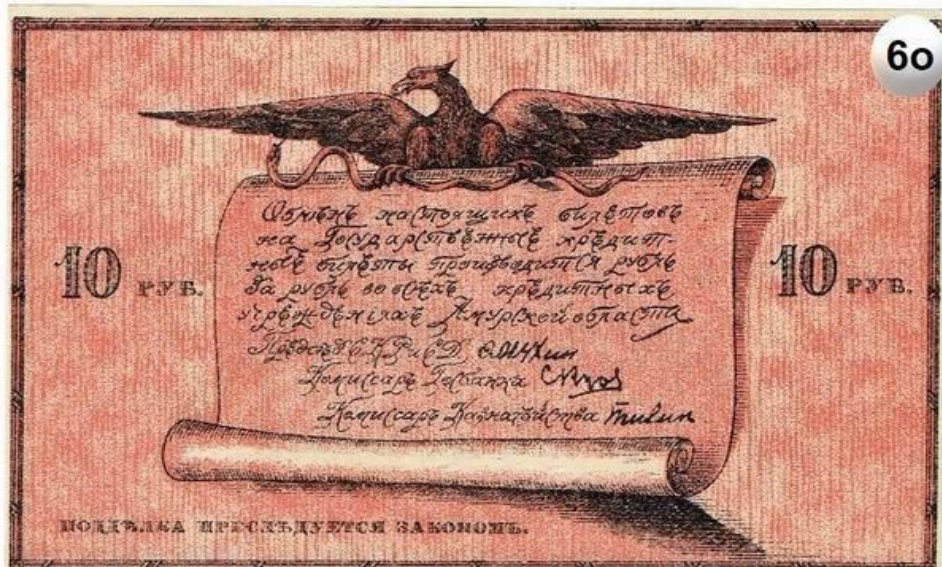 6о
10 РУБ.
10 РУБ.
Обмѣнъ настоящихъ билетовъ
на Государственные кредит-
ные билеты производится рубль
за рубль во всѣхъ кредитныхъ
учрежденіяхъ Амурской области
Комиссаръ Госбанка
Комиссаръ Казначейства
ПОДДѢЛКА ПРЕСЛѢДУЕТСЯ ЗАКОНОМЪ.